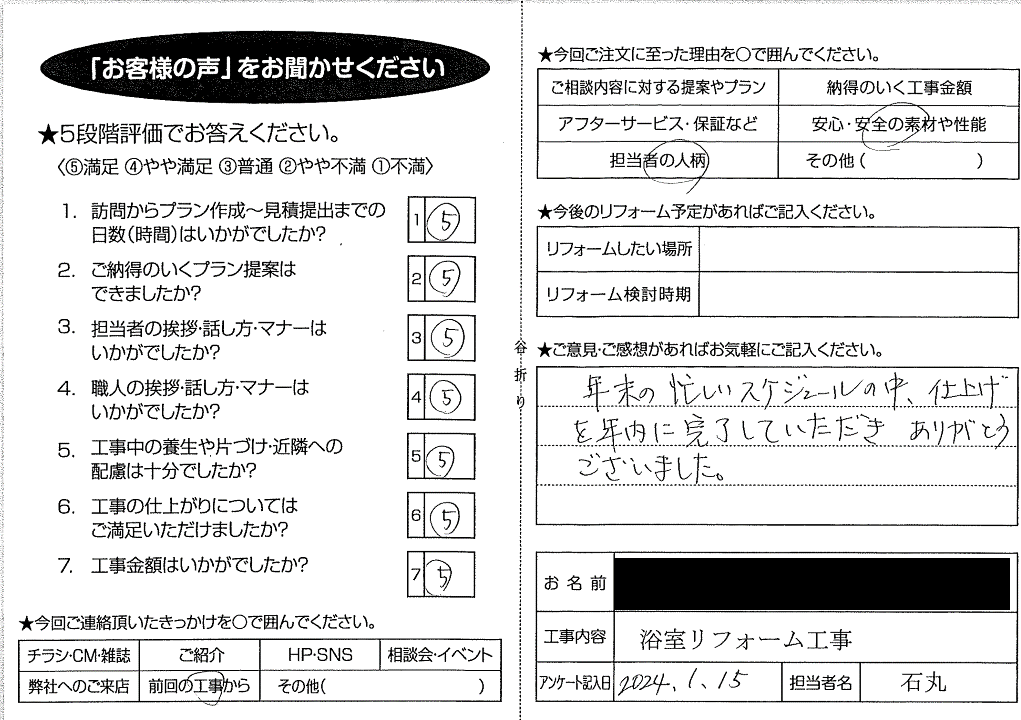 「お客様の声」をお聞かせください
★5段階評価でお答えください。
〈⑤満足 ④やや満足 ③普通 ②やや不満 ①不満〉
1. 訪問からプラン作成〜見積提出までの
日数(時間)はいかがでしたか?
1 ⑤
2. ご納得のいくプラン提案は
できましたか?
2 ⑤
3. 担当者の挨拶・話し方・マナーは
いかがでしたか?
3 ⑤
4. 職人の挨拶・話し方・マナーは
いかがでしたか?
4 ⑤
5. 工事中の養生や片づけ・近隣への
配慮は十分でしたか?
5 ⑤
6. 工事の仕上がりについては
ご満足いただけましたか?
6 ⑤
7. 工事金額はいかがでしたか?
7 ⑤
★今回ご連絡頂いたきっかけを○で囲んでください。
チラシ・CM・雑誌 ご紹介 HP・SNS 相談会・イベント
弊社へのご来店 前回の工事から その他( )
谷折り
★今回ご注文に至った理由を○で囲んでください。
ご相談内容に対する提案やプラン 納得のいく工事金額
アフターサービス・保証など 安心・安全の素材や性能
担当者の人柄 その他( )
★今後のリフォーム予定があればご記入ください。
リフォームしたい場所
リフォーム検討時期
★ご意見・ご感想があればお気軽にご記入ください。
年末の忙しいスケジュールの中、仕上げ
を年内に完了していただき ありがとう
ございました。
お名前
工事内容 浴室リフォーム工事
アンケート記入日 2024.1.15 担当者名 石丸